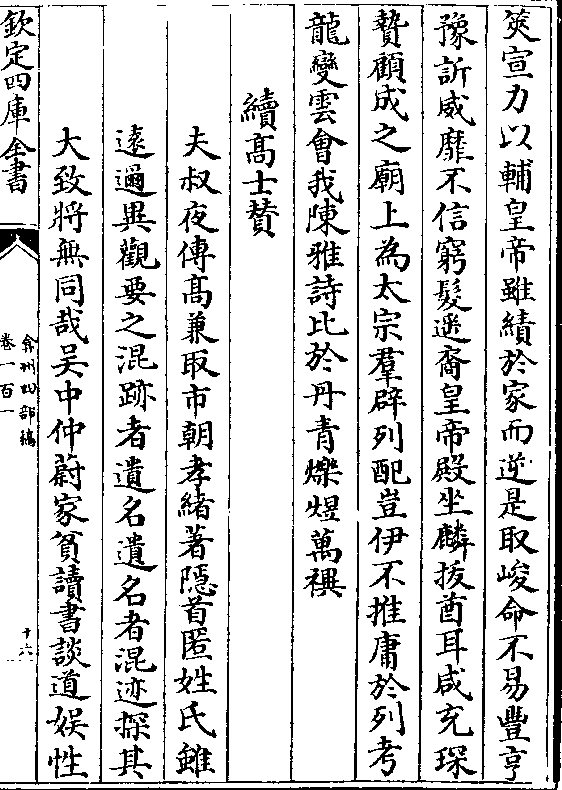 筴宣力以輔皇帝雖績於家而逆是取峻命不易豐亨
豫訢威靡不信窮髮遐裔皇帝殿坐麟拔酋耳咸充琛
贄顧成之廟上為太宗羣辟列配豈伊不推庸於列考
龍變雲會我陳雅詩比於丹青爍煜萬禩
續髙士賛
夫叔夜傳髙兼取市朝孝緒著隱首匿姓氏雖
逺邇異觀要之混跡者遺名遺名者混迹探其
大致將無同哉吴中仲蔚家貧讀書談道娱性
欽定四庫全書
弇州四部稿
卷一百一
十六